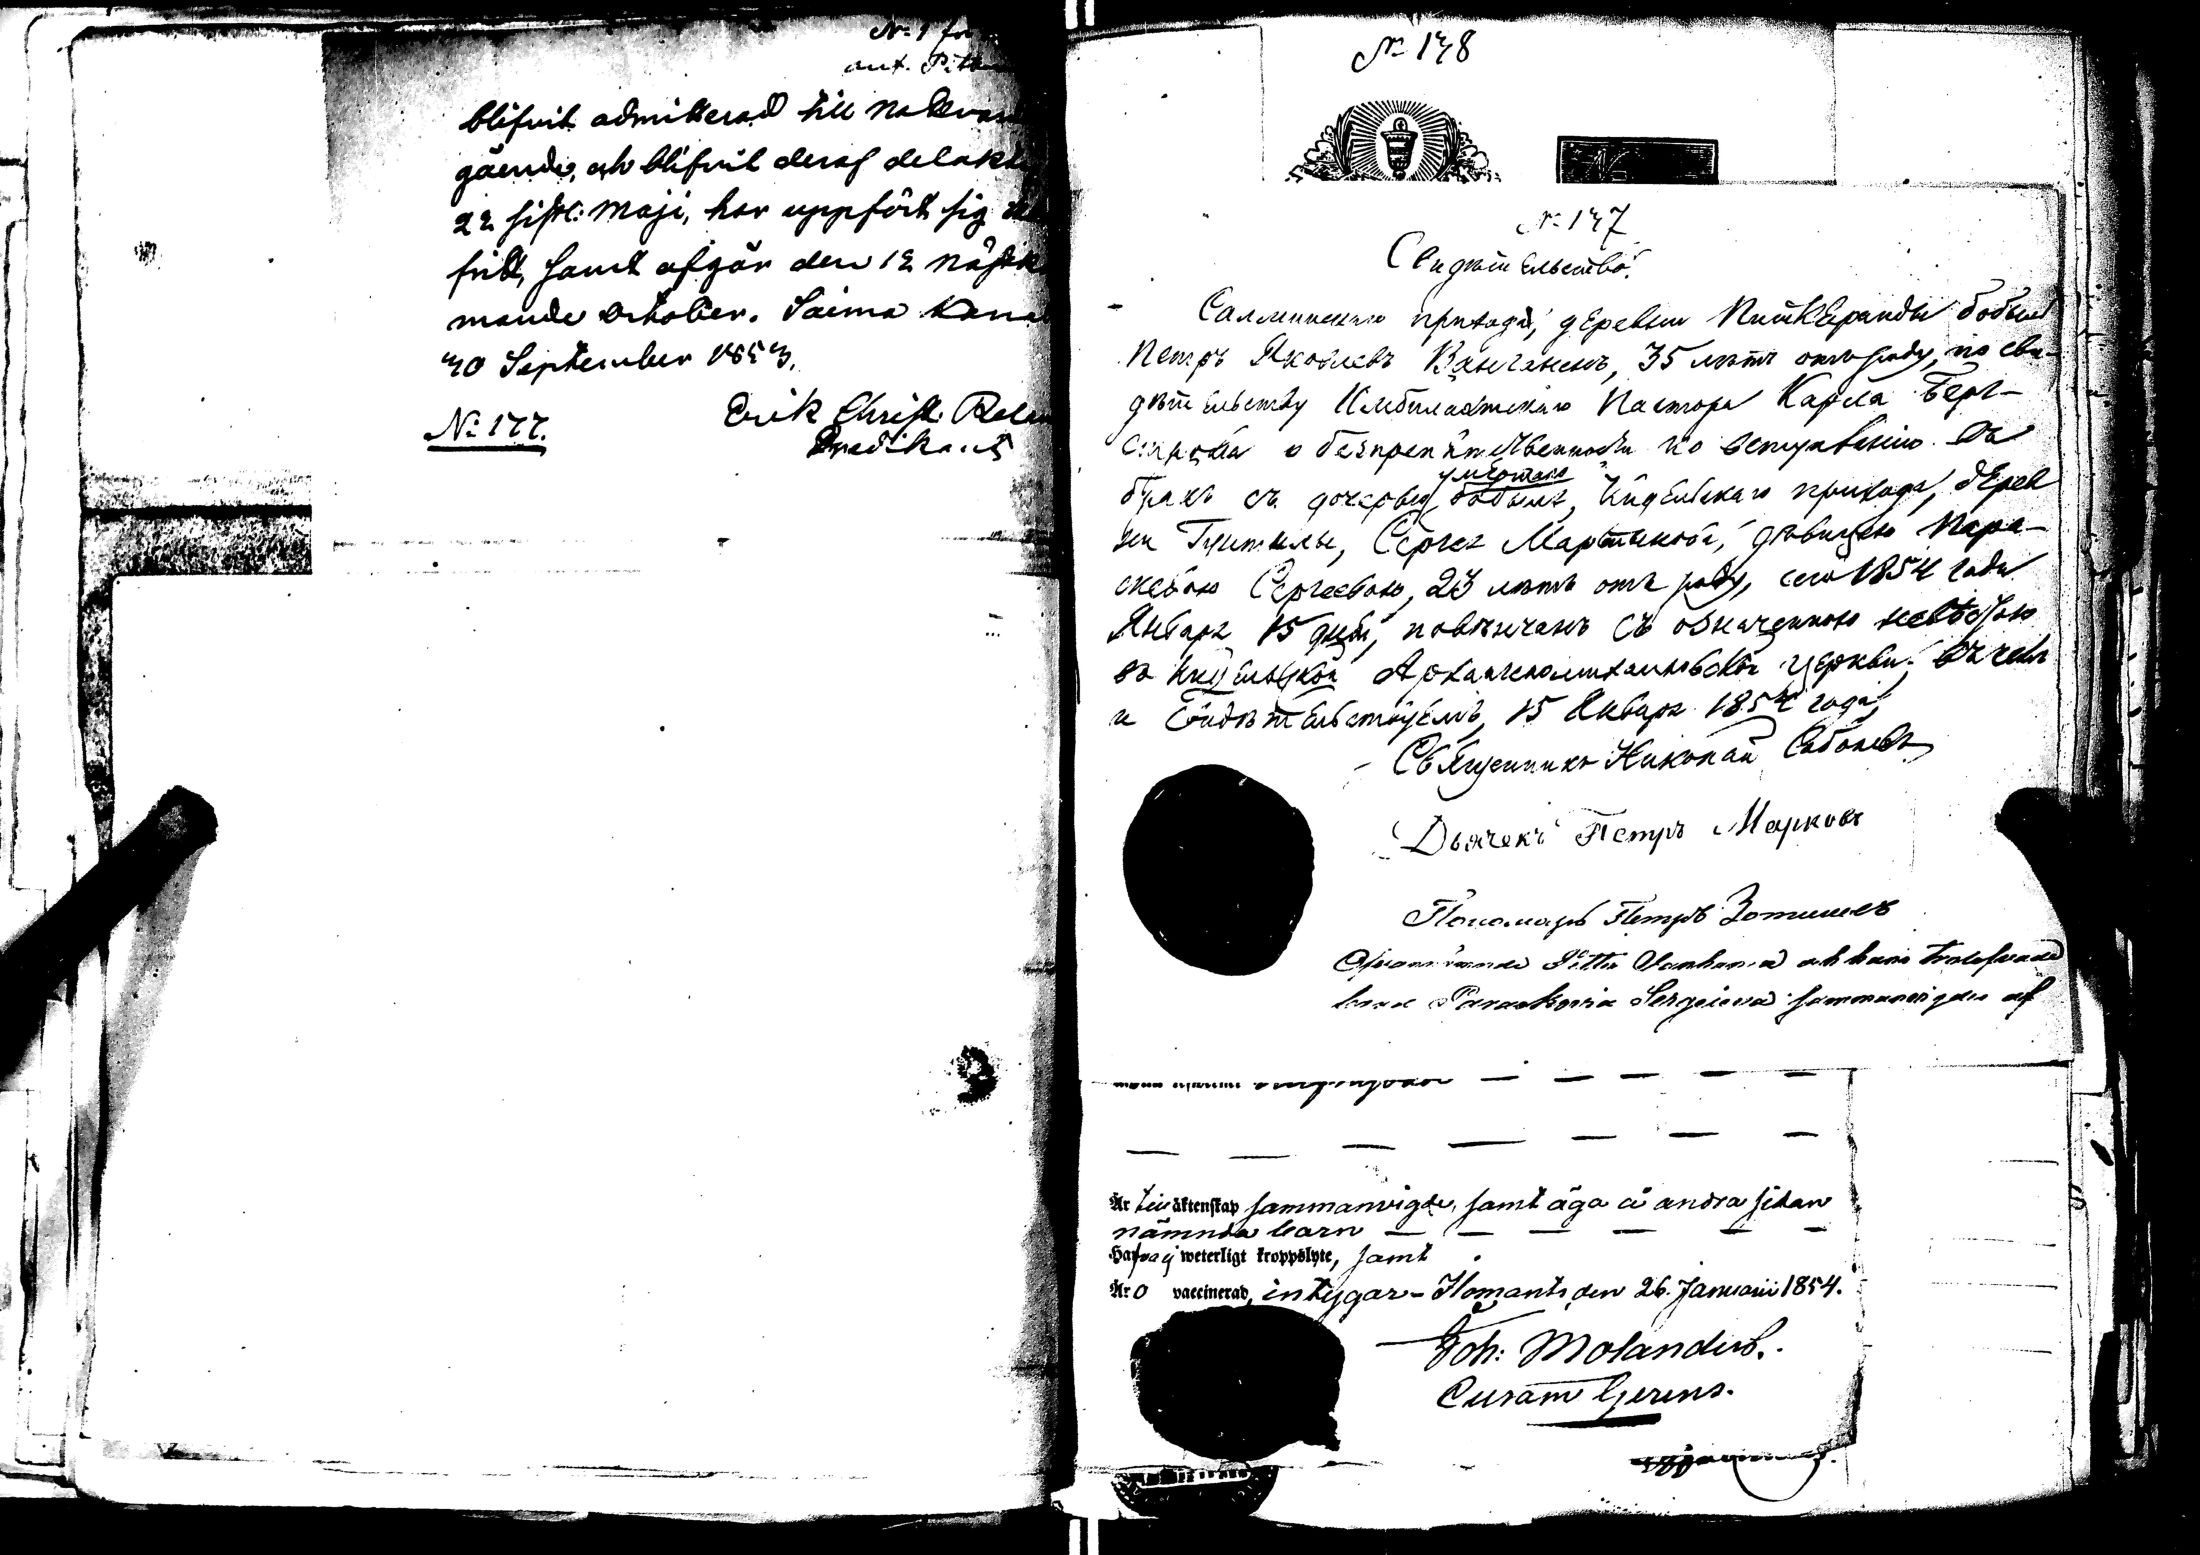 N:o 1
ant.
blifvit admitterad till nattvard
gående, och blifvit deraf delakti
22 sistl: Maji, har uppfört sig
fritt, samt afgår den 12 nästk
mande October. Saima Kanal
30 September 1853.
Erik Christ.
Predikant
N:o 177.
N:o 148
N:o 147
Свидѣтельство.
Салминскаго прихода, деревни Питкеранды бобыль
Петръ Яковлевъ Ванганенъ, 35 лѣтъ отъ роду, по сви-
дѣтельству Имбилахтскаго Пастора Карла Берг-
строма о безпрепятственности ко вступленію въ
бракъ съ дочерью умершаго бобыля, прихода, дерев
ни Сергея Мартынова, дѣвицею Пара-
скевою Сергеевою, 23 лѣтъ отъ роду, сего 1854 года
Января 15 дня, повѣнчанъ съ означенною невѣстою
въ Архангеломихайловской церкви; въ чемъ
и свидѣтельствуемъ, 15 Января 1854 года,
Священникъ Николай Соболевъ
Дьячекъ Петръ Марковъ
Пономарь Петръ
Petter och hans trolofvade
brud Paraskovia Sergeieva sammanvigdes af
Är till äktenskap sammanvigde, samt äga å andra sidan
nämnda barn
Hafva ej weterligt kroppslyte, samt
Är o vaccinerad, intygar - Ilomants den 26. Januarii 1854.
Joh: Molander.
Curam Gerens.